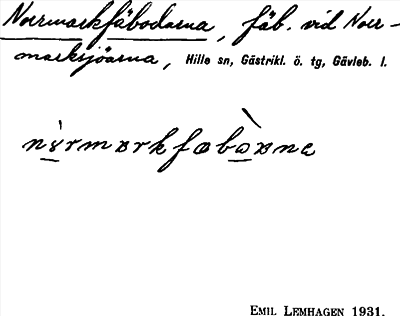 Norrmarkfäbodarna, fäb. vid Norr-
marksjöarna, Hille sn, Gästrikl. ö. tg, Gävleb. l.
EMIL LEMHAGEN 1931.